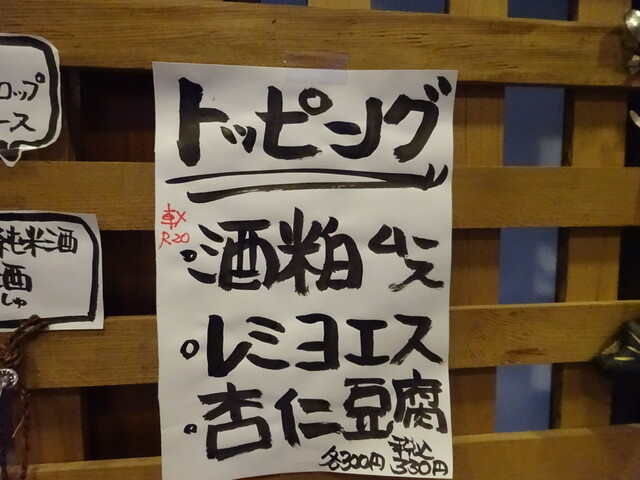 ロップ
ース
純米酒
酒
しゅ
トッピング
R-20
。酒粕ムース
。レミヨエス
。杏仁豆腐
各300円 税込330円